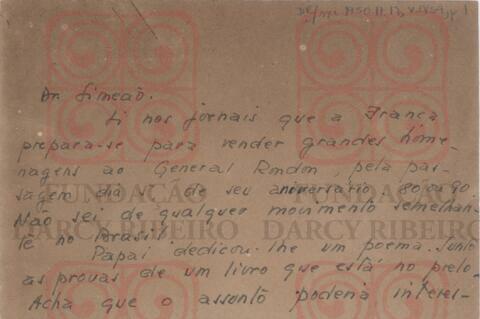 Dr. Simeão.
Li nos jornais que a França
prepara-se para render grandes home-
nagens ao General Rondon, pela pas-
sagem, dia 5, de seu aniversario, 80 ou 90.
Não sei de qualquer movimento semelhan-
te no Brasil.
Papai dedicou-lhe um poema. Junto
as provas de um livro que está no prelo.
Acha que o assunto poderia interes-
FUNDAÇÃO
DARCY RIBEIRO
FUNDAÇÃO
DARCY RIBEIRO